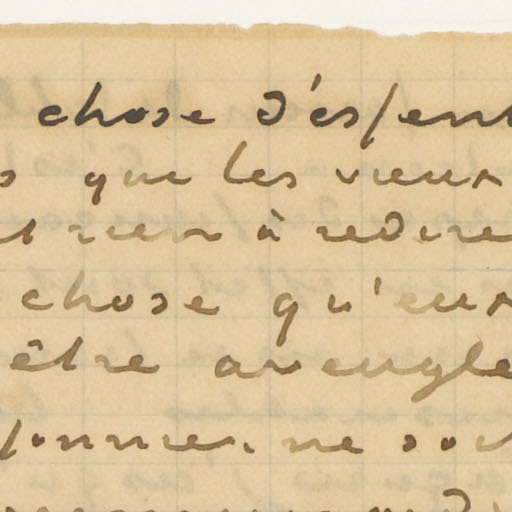 chose d'essent
s que les vieux
t rien à redire
chose qu'eux
être aveugle
sonnes ne so